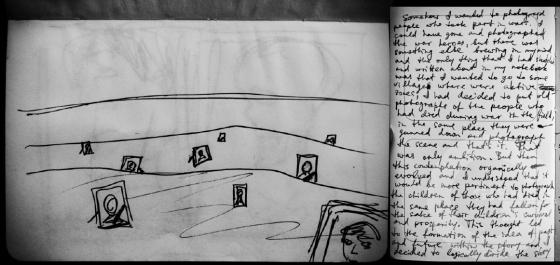 Somehow I wanted to photograph
people who took part in wars. I
could have gone and photographed
the war heroes, but there was
something else brewing in my mind
and the only thing that I had
and written about in my notebook
was that I wanted to go to some
villages where were active
zones. I had decided to put old
photographs of the people who
had died during war in the field,
in the same place they were
gunned down and photograph
the scene and that's it. That
was only ambition. But then
this contemplation organically
evolved and I understood that it
would be more pertinent to photograph
the children of those who had died in
the same place they had fallen for
the sake of their children's survival
and prosperity. This thought led
to the formation of the idea of past
and future within the story and I
decided to logically divide the story